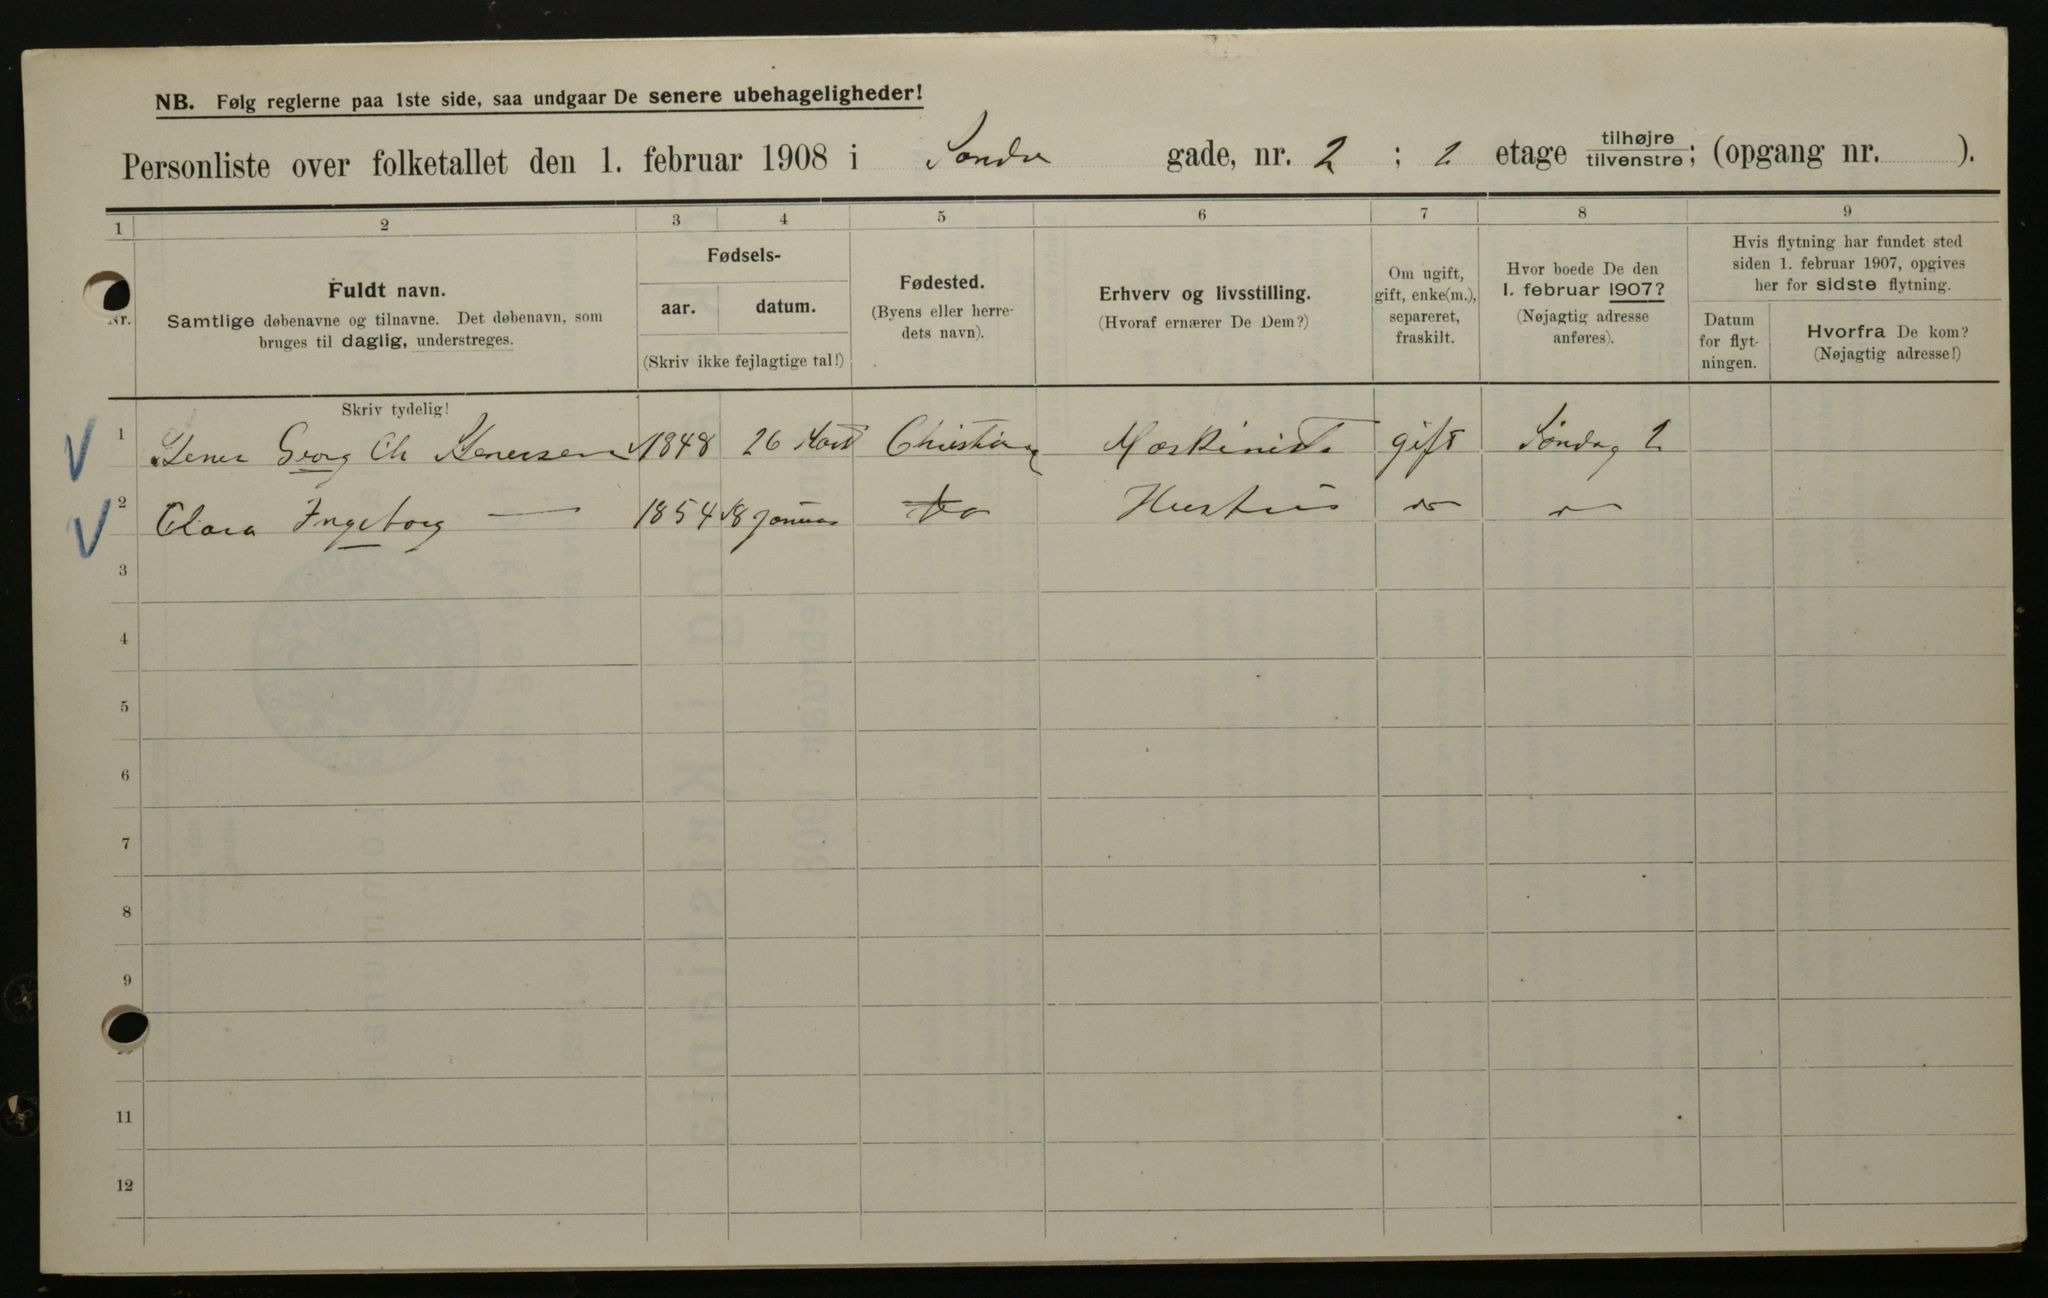 NB. Følg reglerne paa 1ste side, saa undgaar De senere ubehageligheder!
Personliste over folketallet den 1. februar 1908 i Søndre gade, nr. 2 ; 2 etage tilhøjre/tilvenstre; (opgang nr. ).
1 2 3 4 5 6 7 8 9
Nr.
Fuldt navn.
Samtlige døbenavne og tilnavne. Det døbenavn, som
bruges til daglig, understreges.
Fødsels-
aar. datum.
(Skriv ikke fejlagtige tal!)
Fødested.
(Byens eller herre-
dets navn).
Erhverv og livsstilling.
(Hvoraf ernærer De Dem?)
Om ugift,
gift, enke(m.),
separeret,
fraskilt.
Hvor boede De den
1. februar 1907?
(Nøjagtig adresse
anføres).
Hvis flytning har fundet sted
siden 1. februar 1907, opgives
her for sidste flytning.
Datum
for flyt-
ningen.
Hvorfra De kom?
(Nøjagtig adresse!)
Skriv tydelig!
1 Georg Ch 1848 26 Christia Maskinist gift Søndag 2
2 Clara Ingeborg — 1854 18 Januar do Hustru do
3
4
5
6
7
8
9
11
12